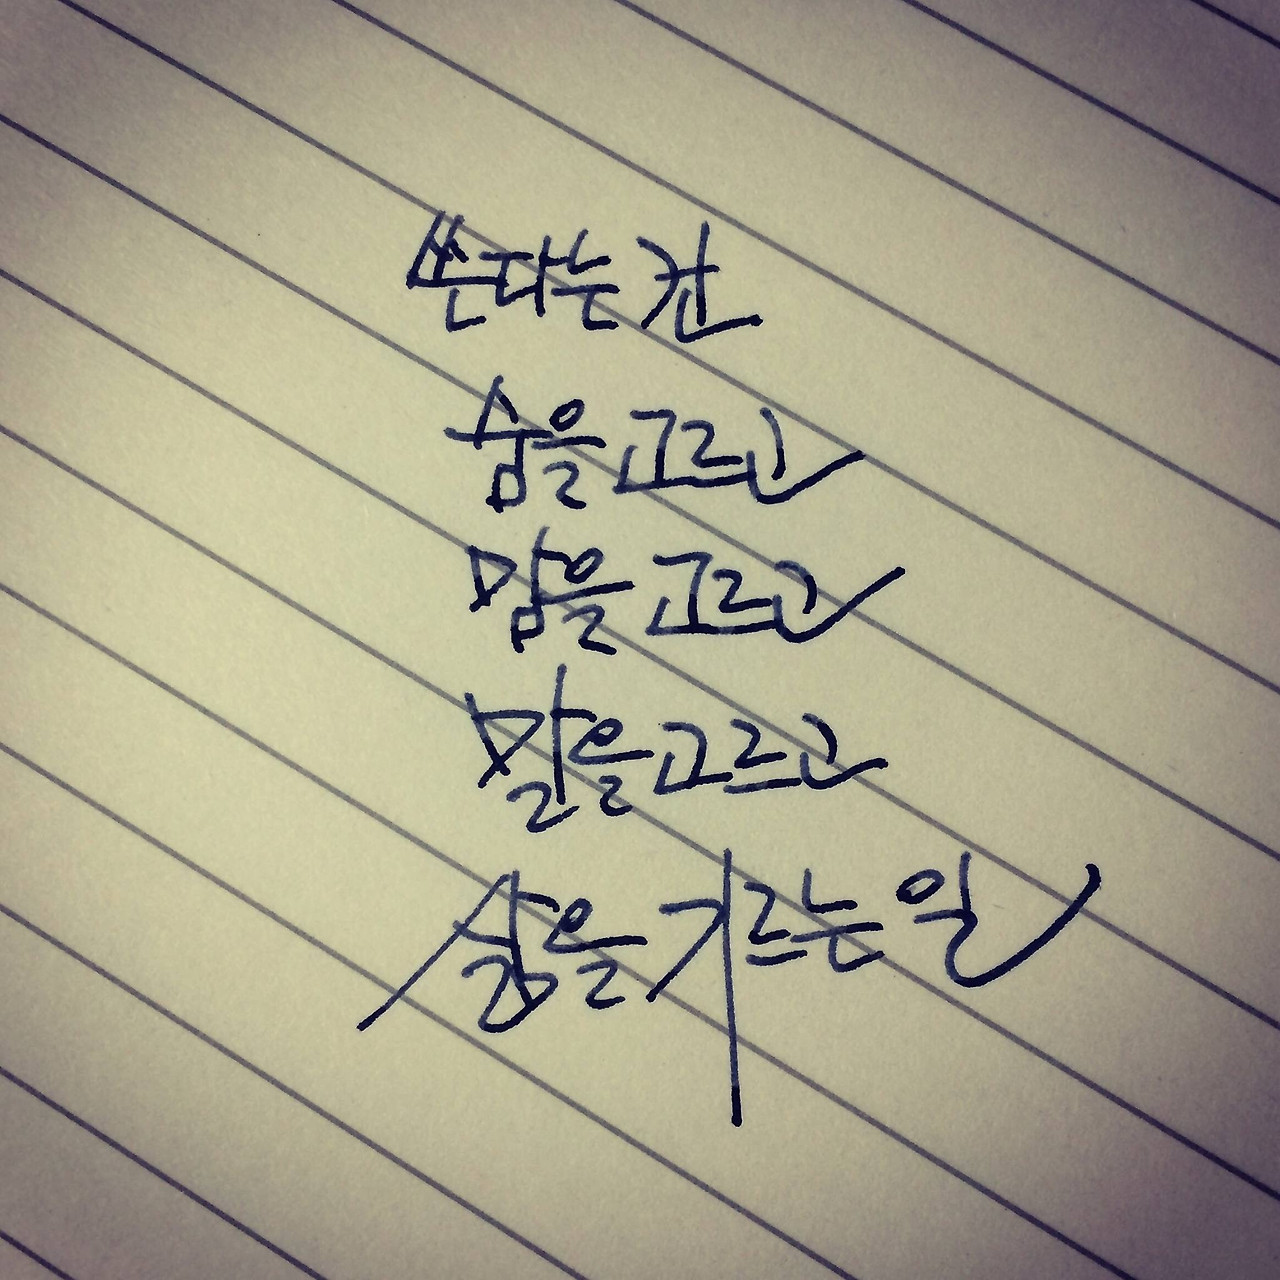 쓴다는 건
숨을 고르고
맘을 고르고
말을 고르고
삶을 기르는 일